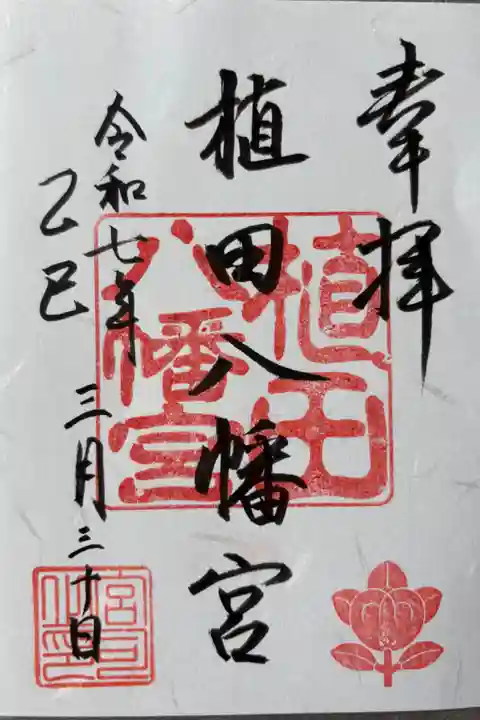 奉拝
植田八幡宮
植田八幡宮
令和七年
乙巳
三月三十日
宮司之印